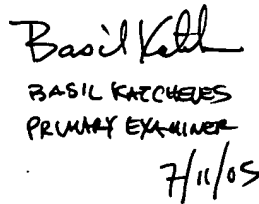 Basil Katch
BASIL KATCHEVES
PRIMARY EXAMINER
7/11/05